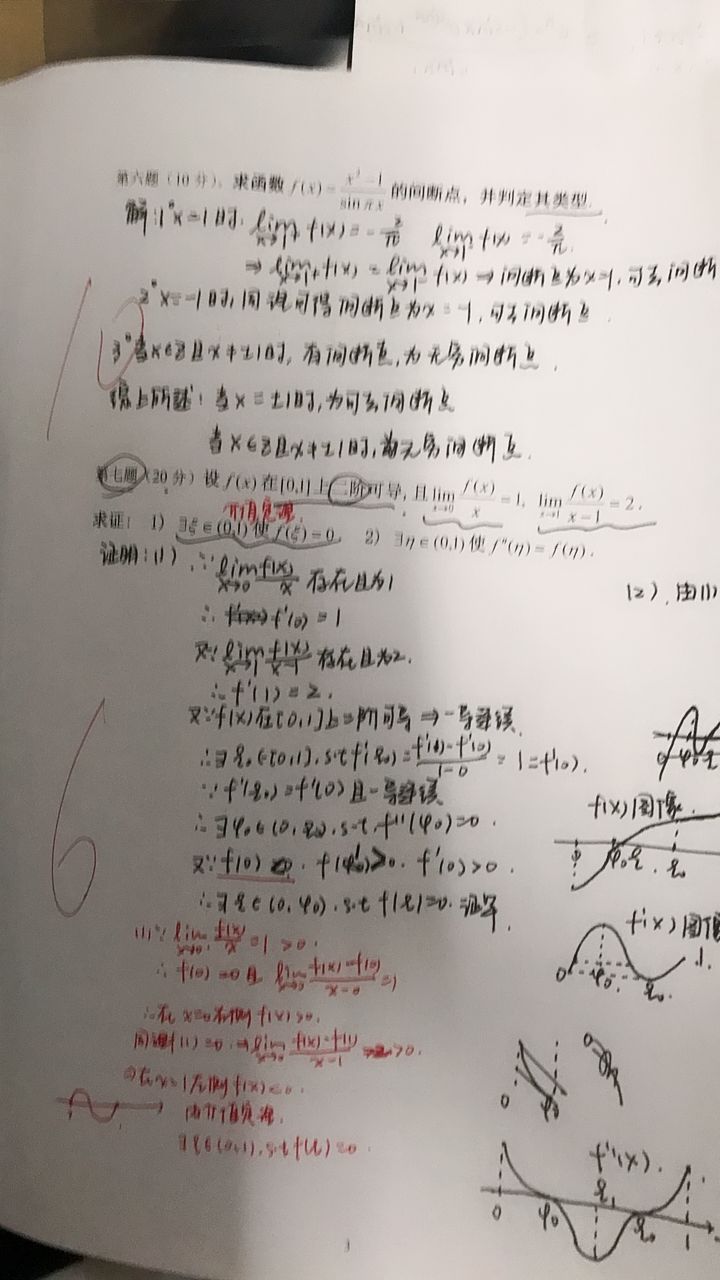 第六题（10 分）、求函数 f(x) = (x² − 1)/(sin πx) 的间断点，并判定其类型.
解：1° x=1时, lim_{x→1⁺} f(x) = −2/π lim_{x→1⁻} f(x) = −2/π.
⇒ lim_{x→1⁺} f(x) = lim_{x→1⁻} f(x) ⇒ 间断点为x=1, 可去间断
2° x=−1时, 同理可得间断点为x=−1, 可去间断点.
3° 当x∈Z且x≠±1时, 有间断点, 为无穷间断点.
综上所述：当x=±1时, 为可去间断点
当x∈Z且x≠±1时, 为无穷间断点.
10
第七题（20 分）设 f(x) 在[0,1]上二阶可导，且 lim_{x→0} f(x)/x = 1, lim_{x→1} f(x)/(x−1) = 2.
介值定理
求证： 1) ∃ξ∈(0,1) 使 f(ξ)=0. 2) ∃η∈(0,1) 使 f″(η)=f(η).
证明：(1) ∵ lim_{x→0} f(x)/x 存在且为1
∴ f′(0)=1
又∵ lim_{x→1} f(x)/(x−1) 存在且为2.
∴ f′(1)=2.
又∵ f(x)在[0,1]上二阶可导 ⇒ 一导连续
∴ ∃ ξ₀∈[0,1], s.t f′(ξ₀) = (f′(1)−f′(0))/(1−0) = 1 = f′(0).
∵ f′(ξ₀)=f′(0) 且一导连续
∴ ∃ φ₀∈(0, ξ₀), s.t. f″(φ₀)=0.
又∵ f(0) . f(φ₀)>0. f′(0)>0.
∴ ∃ ξ∈(0, φ₀). s.t f(ξ)=0. 证毕.
6
(1)∵ lim_{x→0} f(x)/x = 1 > 0.
∴ f(0)=0 且 lim_{x→0} (f(x)−f(0))/(x−0) = 1
∴在 x=0右侧 f(x)>0.
同理f(1)=0. ⇒ lim (f(x)−f(1))/(x−1) = 2 >0.
⇒在x=1左侧 f(x)<0.
由介值定理.
∃ξ∈(0,1), s.t f(ξ)=0.
(2). 由(1)
0 φ₀ ξ
f(x)图像.
0 φ₀ ξ. ξ₀
f′(x)图像
1.
0 φ₀. ξ₀
0 φ₀
f″(x).
0 φ₀ ξ₁ ξ₀ 1
3